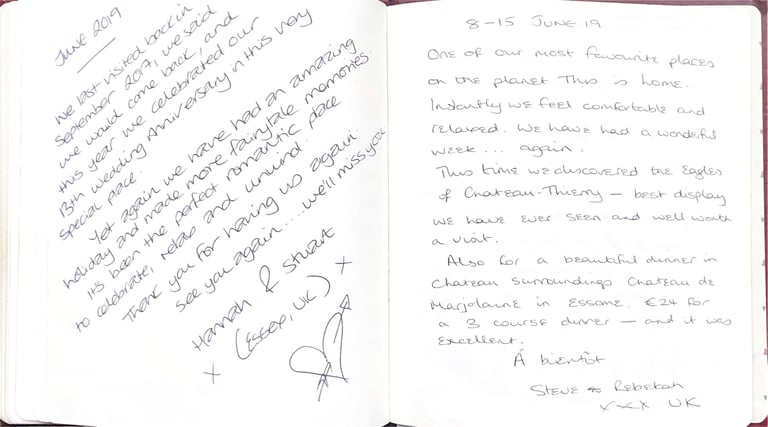 JUNE 2019
We last visited back in
September 2017, we said
we would come back, and
this year we celebrated our
13th Wedding Anniversary in this very
special place.
Yet again we have had an amazing
holiday and made more fairytale memories.
It's been the perfect romantic place
to celebrate, relax and unwind.
Thank you for having us again.
See you again.... we'll miss you
Hannah & Stuart
x (Essex, UK) x
8-15 JUNE 19
One of our most favourite places
on the planet This is home.
Instantly we feel comfortable and
relaxed. We have had a wonderful
week... again.
This time we discovered the Eagles
of Chateau-Thierry – best display
we have ever seen and well worth
a visit.
Also for a beautiful dinner in
Chateau surroundings Chateau de
Marjolaine in Essome. €24 for
a 3 course dinner – and it was
excellent.
Á bientôt
Steve & Rebekah
xxx UK